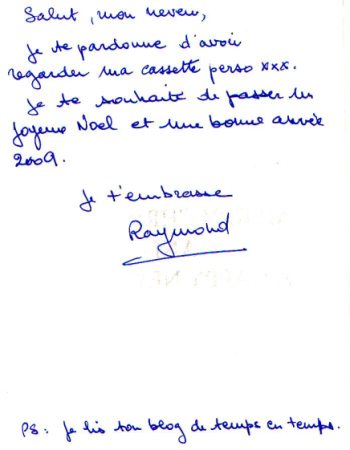 Salut, mon neveu,
Je te pardonne d'avoir
regarder ma cassette perso xxx.
Je te souhaite de passer un
Joyeux Noel et une bonne année
2009.
Je t'embrasse
Raymond
PS: Je lis ton blog de temps en temps.